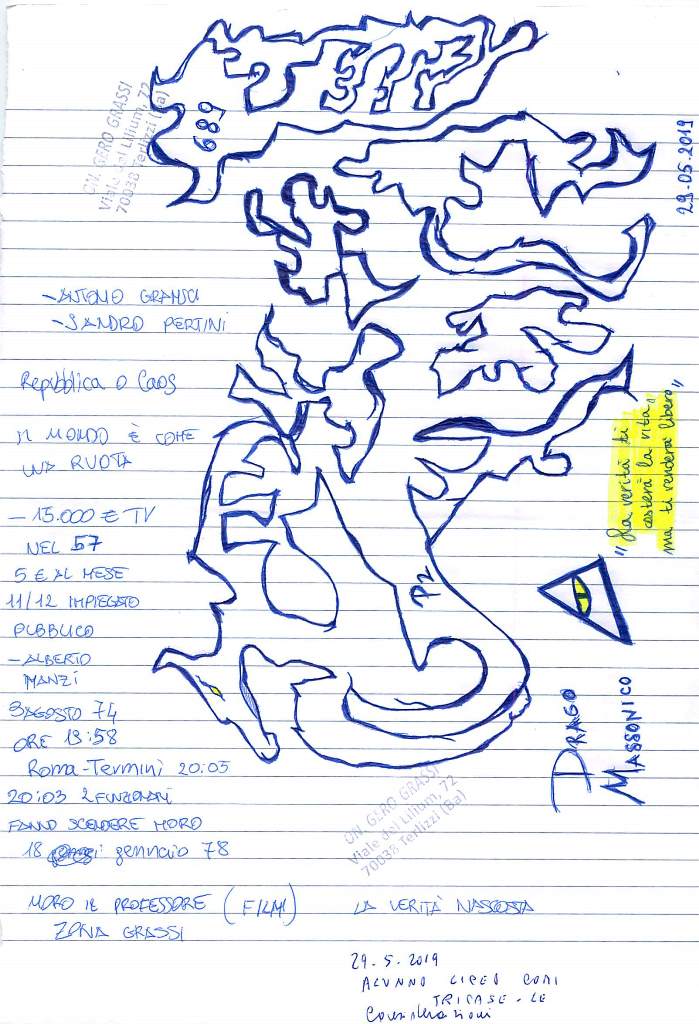 ON. GERO GRASSI
Viale dei Lilium, 72
70038 Terlizzi (Ba)
689
29.05.2019
- ANTONIO GRAMSCI
- SANDRO PERTINI
Repubblica o Caos
IL MONDO È COME
UNA RUOTA
"La verità ti
costerà la vita,
ma ti renderà libero"
- 15.000 € TV
NEL 57
5 € AL MESE
11/12 IMPIEGATO
PUBBLICO
- ALBERTO
MANZI
P2
3 AGOSTO 74
ORE 19:58
Roma-Termini 20:05
20:03 2 FUNZIONARI
FANNO SCENDERE MORO
18 gennaio 78
DRAGO
MASSONICO
ON. GERO GRASSI
Viale dei Lilium, 72
70038 Terlizzi (Ba)
MORO IL PROFESSORE (FILM)
ZONA GRASSI
LA VERITÀ NASCOSTA
29.5.2019
ALUNNO LICEO COMI
TRICASE - LE
Considerazioni